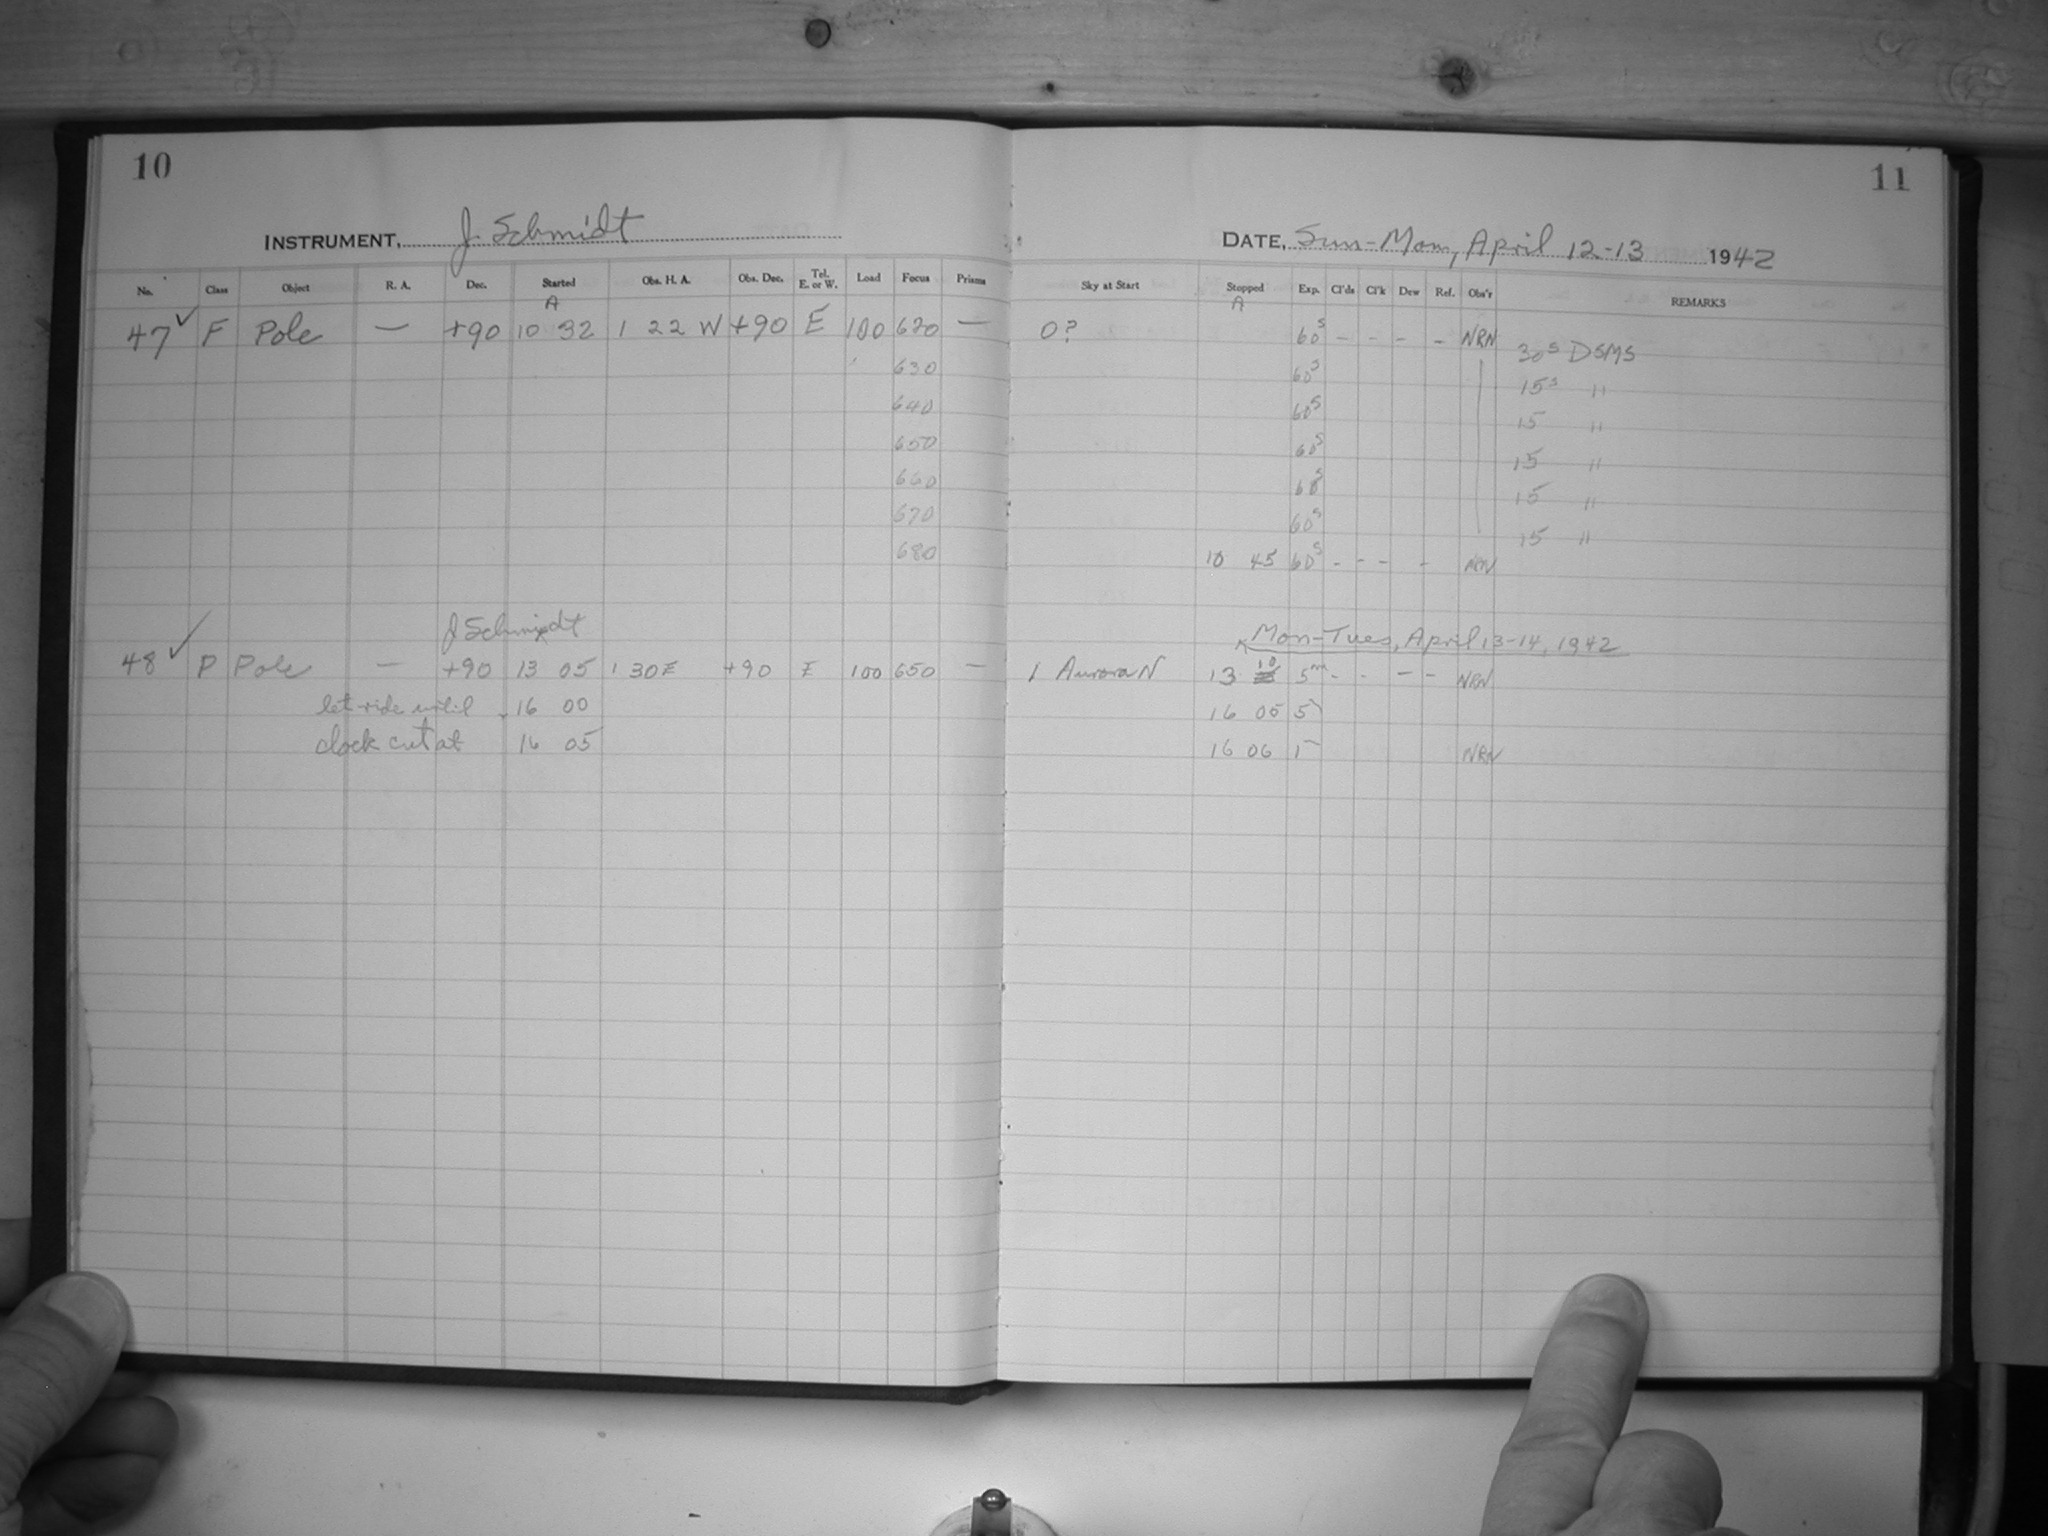 10
INSTRUMENT, J. Schmidt
No. Class Object R. A. Dec. Started Obs. H. A. Obs. Dec. Tel. E. or W. Load Focus Prisms
A
47 ✓ F Pole — +90 10 32 1 22 W +90 E 100 620 —
630
640
650
660
670
680
J Schmidt
48 ✓ P Pole — +90 13 05 1 30 E +90 E 100 650 —
let ride until 16 00
clock cut at 16 05
11
DATE, Sun-Mon, April 12-13 1942
Sky at Start Stopped Exp. Cl'ds Cl'k Dew Ref. Obs'r REMARKS
A
0? 60s - - - - NRN
30s DSMS
60s 15s "
60s 15 "
60s 15 "
60s 15 "
60s 15 "
10 45 60s - - - - NRN
Mon-Tues, April 13-14, 1942
1 Aurora N 13 10 5m - - - - NRN
16 05 5
16 06 1 NRN